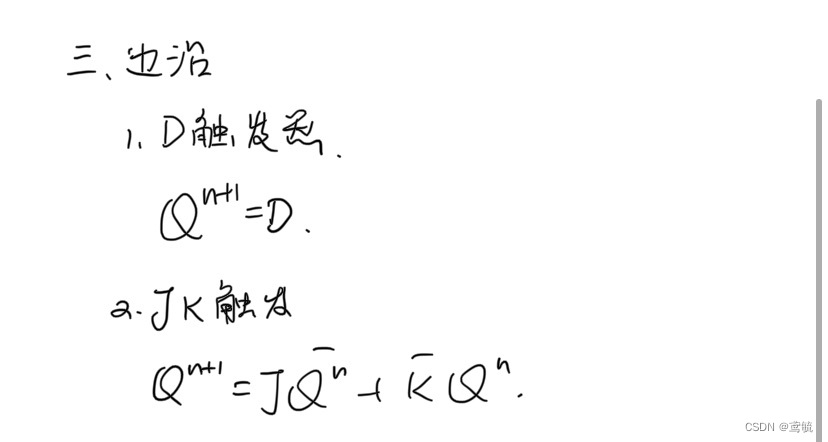 三、边沿
1. D触发器.
Qⁿ⁺¹=D.
2. JK触发
Qⁿ⁺¹=JQ̅ⁿ+K̅Qⁿ.
CSDN @鸢毓